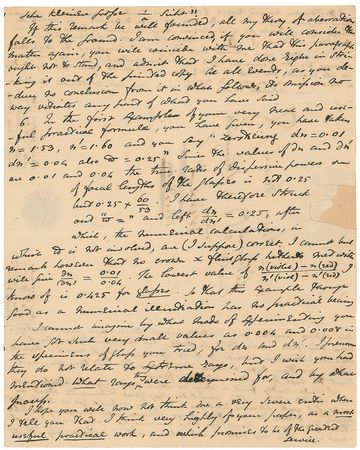 sehr kleiner Größe
If this remark be well founded, all my theory of aberration
falls to the ground. I am convinced, if you will consider the
matter again, you will coincide with me that this paragraph
ought not to stand, and admit that I have done right in stri-
-king it out of the printed copy. At all events, as you de-
-duce no conclusion from it in what follows, its omission no
way vitiates any part of what you have said
6. In the first example of your very neat and use-
-ful practical formula, you have given, you have taken
n = 1.53, n' = 1.60 and you say "zerstreuung dn = 0.01
dn' = 0.04 also = 0.25". Since the value of dn and dn'
are 0.01 and 0.04 the true ratio of dispersive powers
of focal lengths of the glasses is not 0.25
but 0.25 × 60/53. I have therefore struck
out and left dn/dn' = 0.25, after
which, is not involved, the numerical calculations, in
which are (I suppose) correct. I cannot but
remark however that no crown & flint glass hitherto
will give dn/dn' = 0.01/0.04. The lowest value of n(violet) − n(red) / n'(viol) − n'(red) I
know of is 0.425 for so that this example though
good as a numerical illustration has no practical
I cannot imagine by what mode of experimenting you
have got such very small values as 0.004 and 0.005 in
the specimens of glass you tried, for dn and dn'. I presume
they do not relate to extreme rays, but I wish you had
mentioned what rays, were determined for, and by what
process.
I hope you will now not think me a very severe critic when
I tell you that I think very highly of your paper, as a most
useful practical work, and which promises to be of the greatest
service.